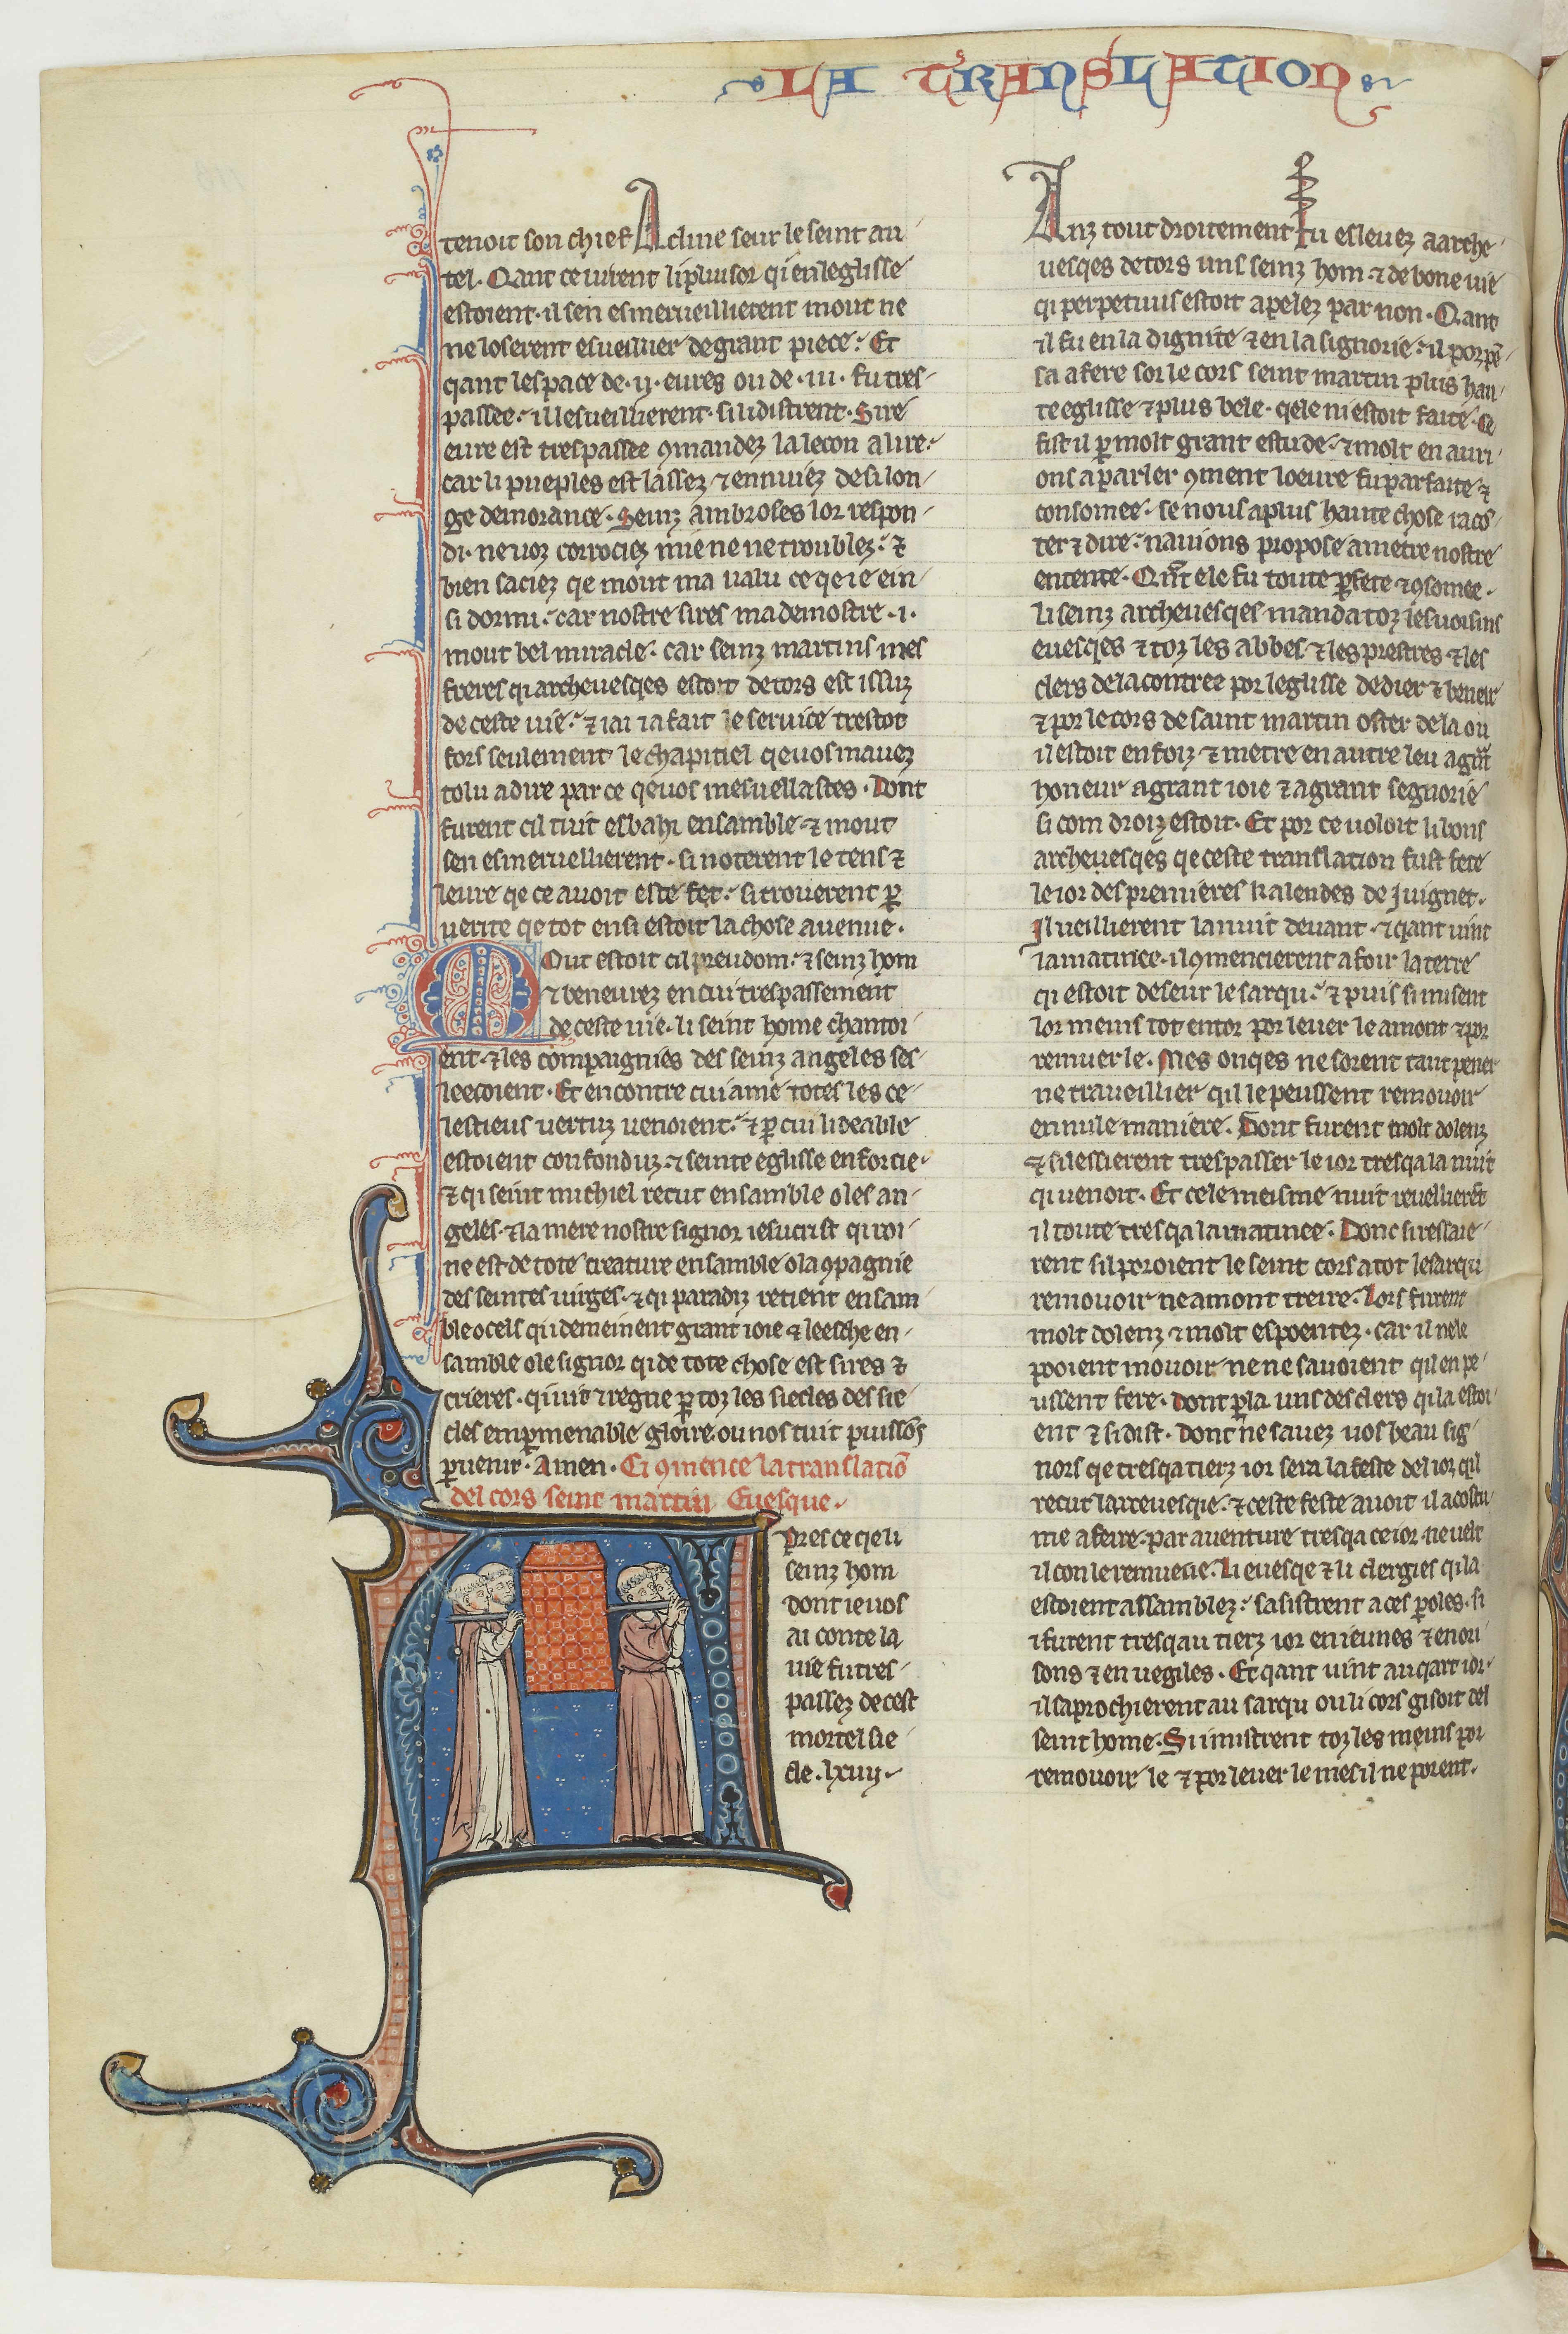 LA TRANSLATION
tenoit son chief Acline seur le seint au
tel. Qant ce uirent li pluisor qi en leglisse
estoient. il sen esmerueillierent mout ne
ne loserent esueillier de grant piece. Et
qant lespace de .ij. eures ou de .iii. fu tres
passee. il lesueillierent. si li distrent. Sire
eure est trespassee 9mandez la lecon a lire.
car li pueples est lassez ⁊ ennuiez de si lon
ge demorance. Seinz ambroses lor respon
di. ne uoz corrociez mie ne ne troublez. ⁊
bien saciez qe mout ma ualu ce qe ie ein
si dormi. car nostre sires ma demostre .i.
mout bel miracle. car seinz martins mes
freres qi archeuesqes estoit de tors est issuz
de ceste uie. ⁊ iai ia fait le seruice trestot
fors seulement le chapitiel qe uos mauez
tolu a dire par ce qe uos mesuellastes. Dont
furent cil tuit esbahi ensamble ⁊ mout
sen esmeruellierent. si noterent le tens ⁊
leure qe ce auoit este fet. si trouerent ꝑ
uerite qe tot ensi estoit la chose auenue.
Out estoit cil preudom. ⁊ seinz hom
⁊ beneurez en cui trespassement
de ceste uie. li seint home chantoi
ent. ⁊ les compaignies des seinz angeles ses
leecoient. Et encontre cui ame totes les ce
lestieus uertuz uenoient. ⁊ ꝑ cui li deable
estoient confonduz. ⁊ seinte eglisse enforcie.
⁊ qi seint michiel recut ensamble o les an
geles. ⁊ la mere nostre signor iesucrist qi roi
ne est de tote creature ensamble o la 9pagnie
des seintes uirges. ⁊ qi paradiz retient ensam
ble o cels qi demeinent grant ioie ⁊ leesche en
samble o le signor qi de tote chose est sires ⁊
crieres. qi uit ⁊ regne ꝑ toz les siecles des sie
cles em ꝑmenable gloire. ou nos tuit puissõs
ꝑuenir. Amen. Ci 9mence la translatiõ
del cors seint martin Euesque.
pres ce qe li
seinz hom
dont ie uos
ai conte la
uie fu tres
passez de cest
mortel sie
cle. lxiiij.
Anz tout droitement Fu esleuez a arche
uesqes de tors uns seinz hom. ⁊ de bone uie
qi perpetuus estoit apelez par non. Qant
il fu en la dignite ⁊ en la signorie. il porpẽ
sa a fere sor le cors seint martin plus hau
te eglisse ⁊ plus bele. qele ni estoit faite. Ce
fist il ꝑ molt grant estude. ⁊ molt en auri
ons a parler 9ment loeure fu parfaite ⁊
consomee. se nous a plus haute chose racõ
ter ⁊ dire. nauions propose a metre nostre
entente. Qñt ele fu toute ꝑfete ⁊ 9somee.
li seinz archeuesqes manda toz ses uoisins
euesqes ⁊ toz les abbes. ⁊ les prestres ⁊ les
clers de la contree por leglisse dedier ⁊ beneir
⁊ por le cors de saint martin oster de la ou
il estoit enfoiz ⁊ metre en autre leu a grãt
honeur a grant ioie ⁊ a grant segnorie
si com droiz estoit. Et por ce uoloit li bons
archeuesqes qe ceste translation fust fete
le ior des premieres kalendes de Juignet.
Il ueillierent la nuit deuant. ⁊ qant uint
la matinee. il 9mencierent a foir la terre
qi estoit deseur le sarqu. ⁊ puis si misent
lor meins tot entor por leuer le amont ⁊ por
remuer le. Mes onqes ne sorent tant pener
ne traueillier qil le peussent remouoir
en nule maniere. Dont furent molt dolenz
⁊ si lessierent trespasser le ior tresqa la nuit
qi uenoit. Et cele meisme nuit reuellierẽt
il toute tresqa la matinee. Donc si ressaie
rent sil poroient le seint cors a tot le sarqu
remouoir ne amont treire. Lors furent
molt dolenz ⁊ molt espoentez. car il ne le
pooient mouoir. ne ne sauoient qil en pe
ussent fere. dont ꝑla uns des clers qi la estoi
ent ⁊ si dist. Dont ne sauez uos beau sig
nors qe tresqa tierz ior sera la feste del ior qil
recut larceuesqie. ⁊ ceste feste auoit il acostu
me a feire. par auenture tresqa ce ior ne uelt
il con le remueue. Li euesqe ⁊ li clergies qi la
estoient assamblez. sasistrent a ces ꝑoles. si
i furent tresqau tierz ior en ieunes ⁊ en ori
sons ⁊ en uegiles. Et qant uint au qart ior.
il saprochierent au sarqu ou li cors gisoit del
seint home. Si i mistrent toz les meins por
remouoir le ⁊ por leuer le mes il ne porent.